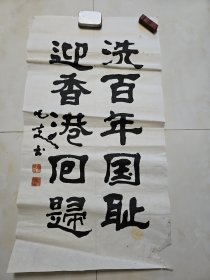 洗百年国耻
迎香港回歸